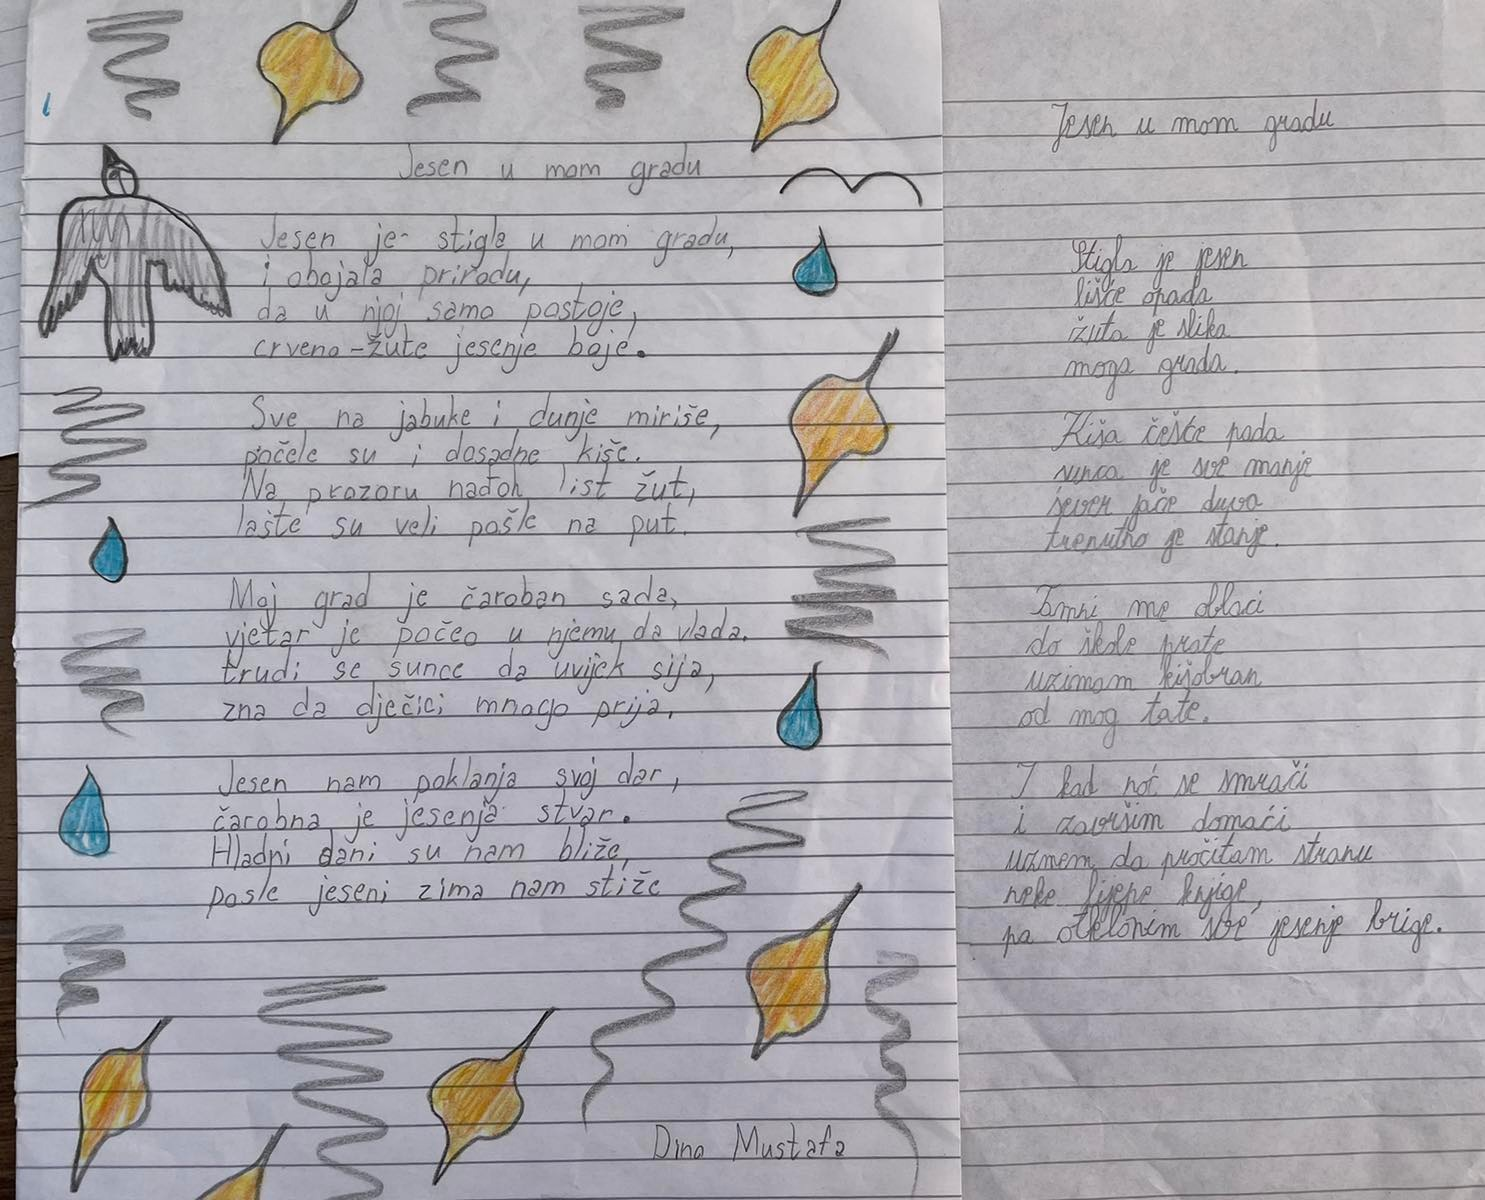 Jesen u mom gradu
Jesen je stigla u mom gradu,
i obojala prirodu,
da u njoj samo postoje,
crveno-žute jesenje boje.
Sve na jabuke i dunje miriše,
počele su i dosadne kiše.
Na prozoru nađoh list žut,
laste su veli pošle na put.
Moj grad je čaroban sada,
vjetar je počeo u njemu da vlada.
trudi se sunce da uvijek sija,
zna da dječici mnogo prija.
Jesen nam poklanja svoj dar,
čarobna je jesenja stvar.
Hladni dani su nam bliže,
posle jeseni zima nam stiže
Dino Mustafa
Jesen u mom gradu
Stigla je jesen
lišće opada
žuta je slika
moga grada.
Kiša češće pada
sunca je sve manje
sever jače duva
trenutno je stanje.
Tamni me oblaci
do škole prate
uzimam kišobran
od mog tate.
I kad noć se smrači
i završim domaći
uzmem da pročitam stranu
neke lijepe knjige,
pa otklonim sve jesenje brige.